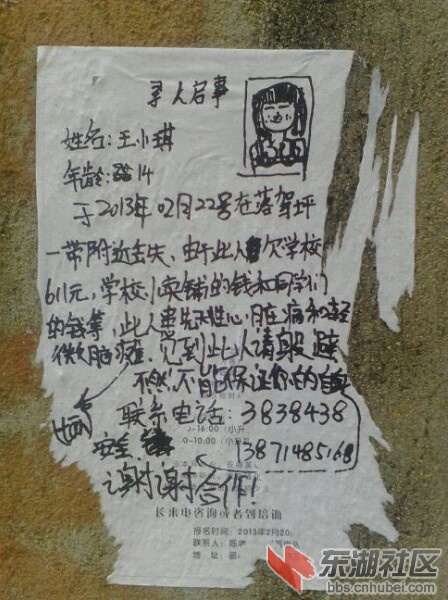 寻人启事
姓名:王小琪
年龄:14
于2013年02月22号在落驾坪
一带附近丢失,由于此人欠学校
611元,学校小卖铺的钱和同学们
的钱等,此人患先天性心脏病和轻
微脑瘫.见到此人请
不然不能保证你的
联系电话:3838438
-16:00(小升
0-10:00(小升
安全
13871485168
谢谢合作!
长来电咨询或者到培训
报名时间:2013年2月20
联系人:陈
地 址:
东湖社区
bbs.cnhubei.com